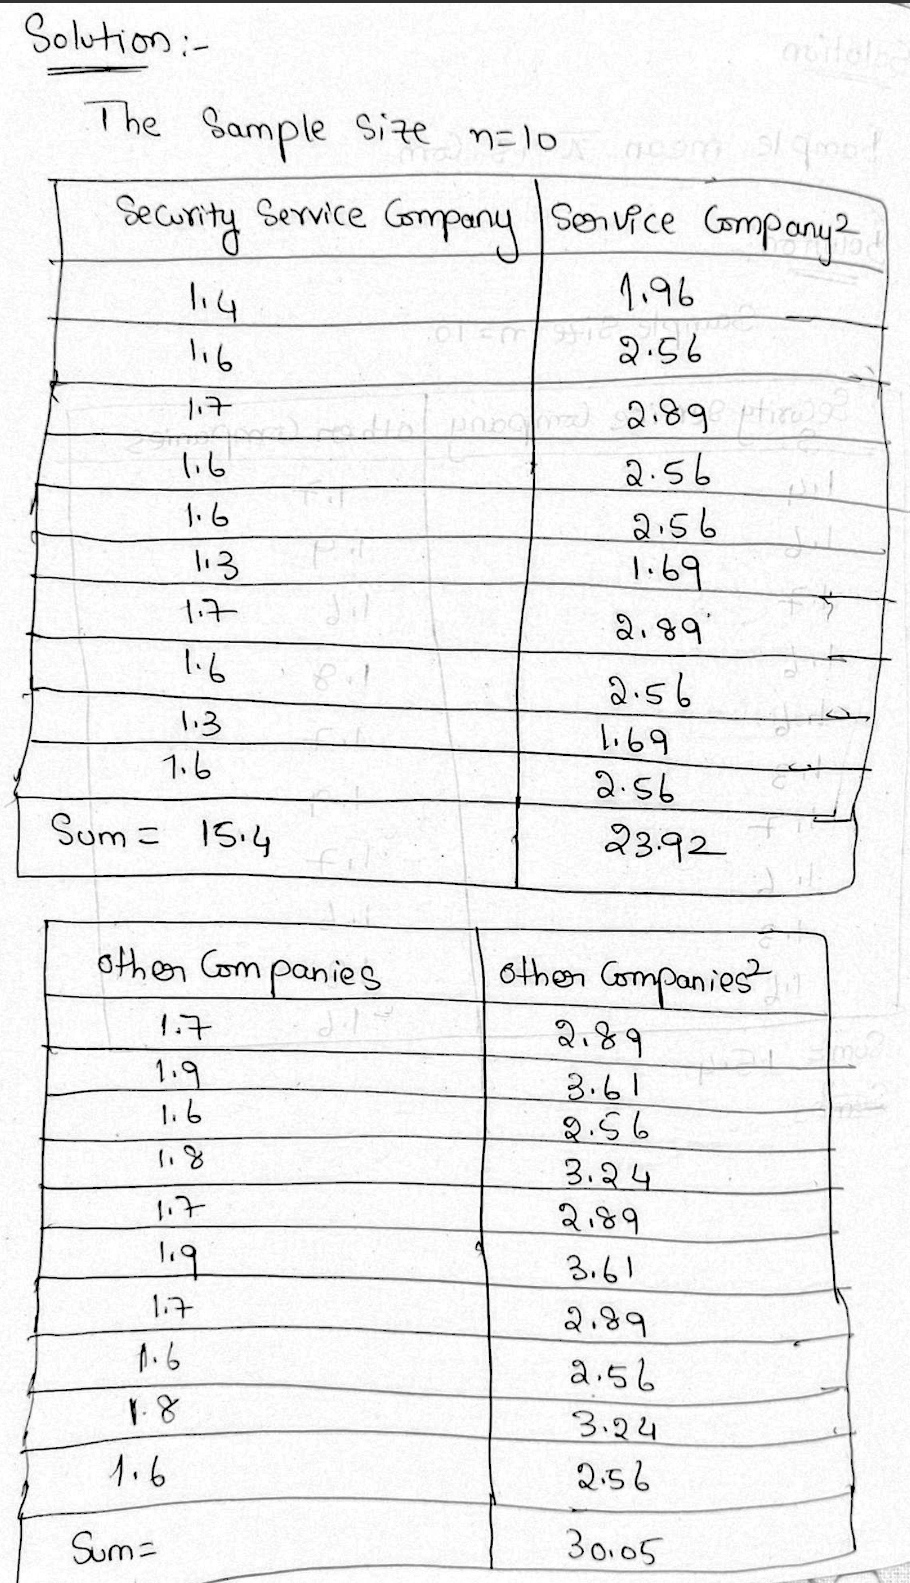 Solution :-
The Sample Size n=10
Security Service Company Service Company²
1.4 1.96
1.6 2.56
1.7 2.89
1.6 2.56
1.6 2.56
1.3 1.69
1.7 2.89
1.6 2.56
1.3 1.69
1.6 2.56
Sum = 15.4 23.92
other Companies other Companies²
1.7 2.89
1.9 3.61
1.6 2.56
1.8 3.24
1.7 2.89
1.9 3.61
1.7 2.89
1.6 2.56
1.8 3.24
1.6 2.56
Sum= 30.05